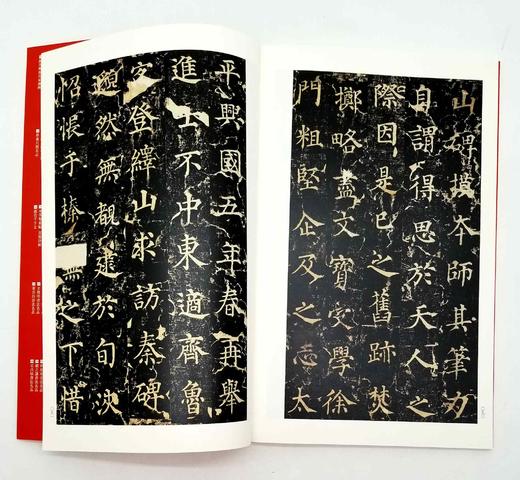 山碑摸本師其筆力
自謂得思於天人之
際因是已之舊跡焚
擲略盡文寶受學徐
門粗堅企及之志太
平興國五年春再舉
進士不中東適齊魯
客登繹山求訪秦碑
邈然無覩逮於旬浹
怊悵于榛蕪之下惜